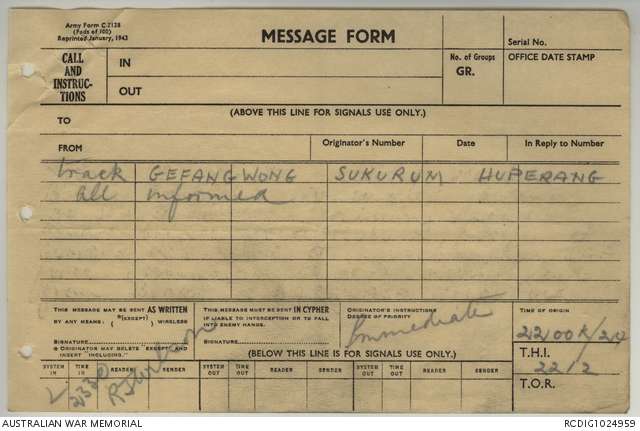 Army Form C.2128
(Pads of 100)
Reprinted January, 1943
MESSAGE FORM
Serial No.
CALL AND INSTRUC-TIONS
IN
OUT
No. of Groups
GR.
OFFICE DATE STAMP
(ABOVE THIS LINE FOR SIGNALS USE ONLY.)
TO
FROM
Originator's Number
Date
In Reply to Number
track GEFANGWONG SUKURUM HUPERANG
all informed
THIS MESSAGE MAY BE SENT AS WRITTEN
BY ANY MEANS. (*(EXCEPT) ) WIRELESS
SIGNATURE
* ORIGINATOR MAY DELETE "EXCEPT" AND
INSERT "INCLUDING."
THIS MESSAGE MUST BE SENT IN CYPHER
IF LIABLE TO INTERCEPTION OR TO FALL
INTO ENEMY HANDS.
SIGNATURE
ORIGINATOR'S INSTRUCTIONS
DEGREE OF PRIORITY
Immediate
TIME OF ORIGIN
2200K/24
T.H.I.
22/2
T.O.R.
(BELOW THIS LINE IS FOR SIGNALS USE ONLY.)
SYSTEM IN
TIME IN
READER
SENDER
SYSTEM OUT
TIME OUT
READER
SENDER
SYSTEM OUT
TIME OUT
READER
SENDER
L 2330
AUSTRALIAN WAR MEMORIAL
RCDIG1024959